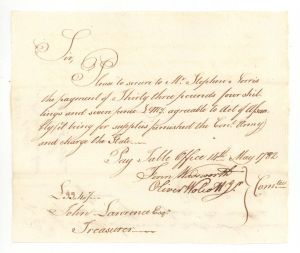 Sir,
Please to secure to Mr. Stephen Norris
the payment of Thirty three pounds four shil
lings and seven pence L My. agreeable to Act of Assem
bly, it being for supplies furnished the Con. Army
and charge the State
Pay Table Office 14th May 1782
Comtee
Oliver Wolcott Jr.
£33.4.7.
John Lawrence Esqr.
Treasurer